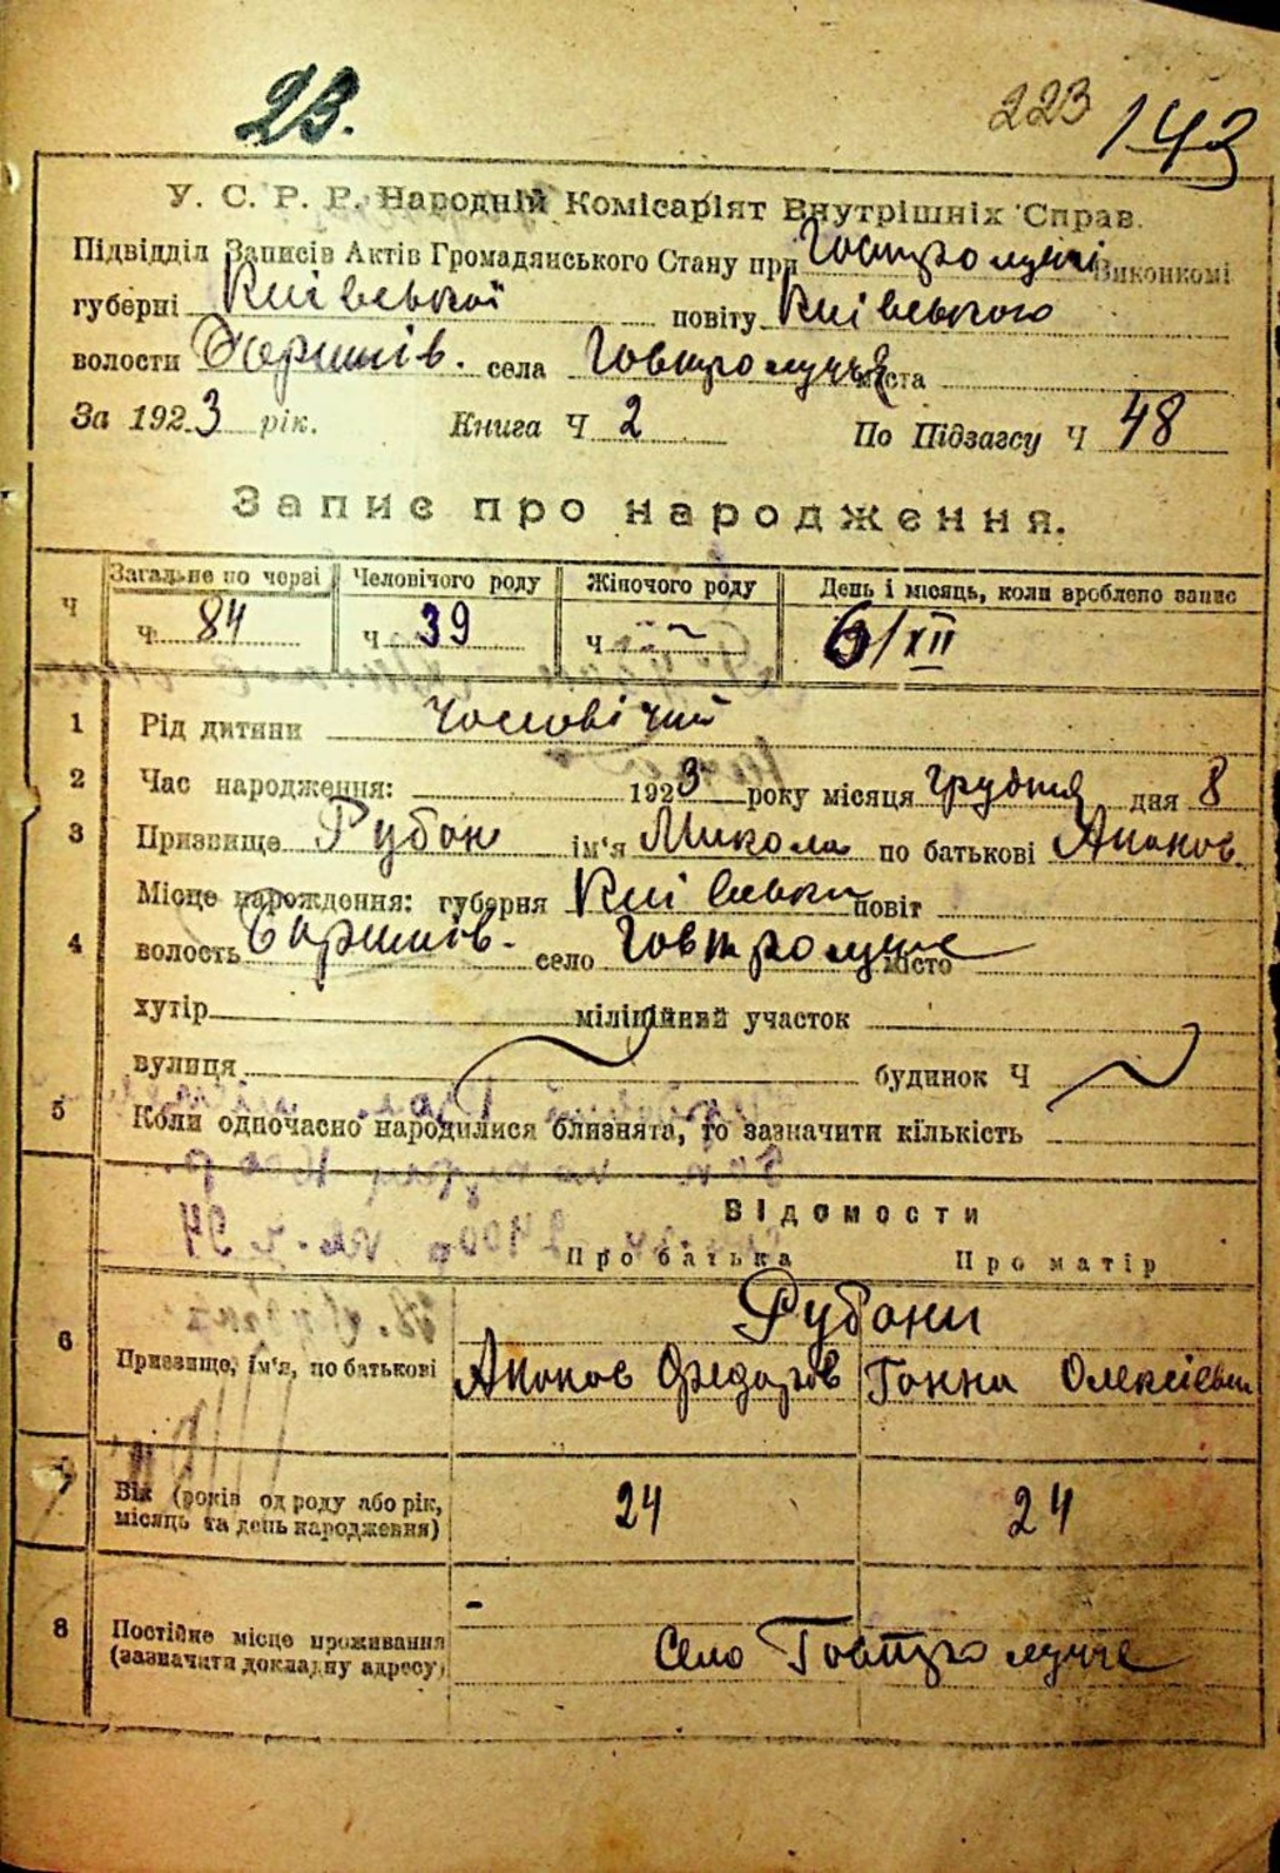 23.
223 143
У. С. Р. Р. Народній Комісаріят Внутрішніх Справ.
Підвідділ Записів Актів Громадянського Стану при Виконкомі
губерні Київської повіту Київського
волости села міста
За 1923 рік. Книга Ч 2 По Підзагсу Ч 48
Запис про народження.
Загальне по черзі Человічого роду Жіночого роду День і місяць, коли зроблено запис
Ч ч. 84 ч 39 ч 6/XII
1 Рід дитини Чоловічий
2 Час народження: 1923 року місяця Грудня дня 8
3 Призвище Рубан ім'я Микола по батькові
Місце нарождення: губерня Київська повіт
4 волость село місто
хутір міліційний участок
вулиця будинок Ч
5 Коли одночасно народилися близнята, то зазначити кількість
Відомости
Про батька Про матір
Рубани
6 Призвище, ім'я, по батькові Ганна
7 Вік (років од роду або рік, 24 24
місяць та день народження)
8 Постійне місце проживання Село
(зазначити докладну адресу)